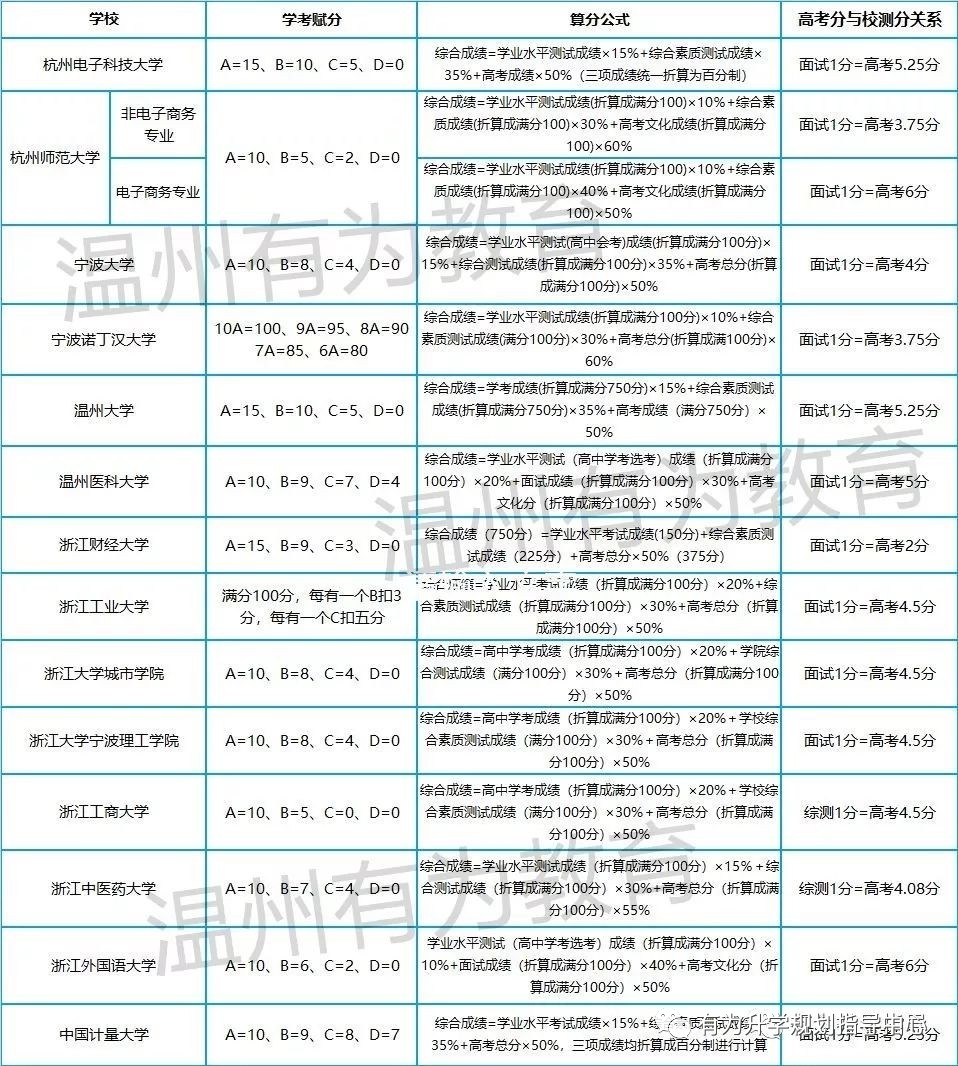 学校 学考赋分 算分公式 高考分与校测分关系
杭州电子科技大学 A=15、B=10、C=5、D=0
综合成绩=学业水平测试成绩×15%+综合素质测试成绩×
35%+高考成绩×50%（三项成绩统一折算为百分制）
面试1分=高考5.25分
杭州师范大学
非电子商务
专业
A=10、B=5、C=2、D=0
综合成绩=学业水平测试成绩(折算成满分100)×10%+综合素
质成绩(折算成满分100)×30%+高考文化成绩(折算成满分
100)×60%
面试1分=高考3.75分
电子商务专业
综合成绩=学业水平测试成绩(折算成满分100)×10%+综合素
质成绩(折算成满分100)×40%+高考文化成绩(折算成满分
100)×50%
面试1分=高考6分
宁波大学
A=10、B=8、C=4、D=0
综合成绩=学业水平测试(高中会考)成绩(折算成满分100分)×
15%+综合测试成绩(折算成满分100分)×35%+高考总分(折算
成满分100分)×50%
面试1分=高考4分
宁波诺丁汉大学
10A=100、9A=95、8A=90
7A=85、6A=80
综合成绩=学业水平测试成绩(折算成满分100分)×10%+综合
素质测试成绩(满分100分)×30%+高考总分(折算成满100分)×
60%
面试1分=高考3.75分
温州大学
A=15、B=10、C=5、D=0
综合成绩=学考成绩(折算成满分750分)×15%+综合素质测试
成绩(折算成满分750分)×35%+高考成绩（满分750分）×
50%
面试1分=高考5.25分
温州医科大学
A=10、B=9、C=7、D=4
综合成绩=学业水平测试（高中学考选考）成绩（折算成满分
100分）×20%+面试成绩（折算成满分100分）×30%+高考
文化分（折算成满分100分）×50%
面试1分=高考5分
浙江财经大学
A=15、B=9、C=3、D=0
综合成绩（750分）=学业水平考试成绩(150分)+综合素质测
试成绩（225分）+高考总分×50%（375分）
面试1分=高考2分
浙江工业大学
满分100分，每有一个B扣3
分，每有一个C扣五分
综合成绩=学业水平考试成绩（折算成满分100分）×20%+综
合素质测试成绩（折算成满分100分）×30%+高考总分（折算
成满分100分）×50%
面试1分=高考4.5分
浙江大学城市学院
A=10、B=8、C=4、D=0
综合成绩=高中学考成绩（折算成满分100分）×20%＋学院综
合测试成绩（满分100分）×30%＋高考总分（折算成满分100
分）×50%
面试1分=高考4.5分
浙江大学宁波理工学院
A=10、B=8、C=4、D=0
综合成绩=高中学考成绩（折算成满分100分）×20%＋学校综
合素质测试成绩（满分100分）×30%＋高考总分（折算成满
分100分）×50%
面试1分=高考4.5分
浙江工商大学
A=10、B=5、C=0、D=0
综合成绩=高中学考成绩（折算成满分100分）×20%＋学校综
合素质测试成绩（满分100分）×30%＋高考总分（折算成满分
100分）×50%
综测1分=高考4.5分
浙江中医药大学
A=10、B=7、C=4、D=0
综合成绩=学业水平测试成绩（折算成满分100分）×15%＋综
合测试成绩（折算成满分100分）×30%＋高考总分（折算成满
分100分）×55%
综测1分=高考4.08分
浙江外国语大学
A=10、B=6、C=2、D=0
学业水平测试（高中学考选考）成绩（折算成满分100分）×
10%+面试成绩（折算成满分100分）×40%+高考文化分（折
算成满分100分）×50%
面试1分=高考6分
中国计量大学
A=10、B=9、C=8、D=7
综合成绩=学业水平考试成绩×15%+综合素质测试成绩×
35%+高考总分×50%，三项成绩均折算成百分制进行计算
面试1分=高考5.25分
温州有为教育
温州有为教育
温州有为教育
有为升学规划指导中心